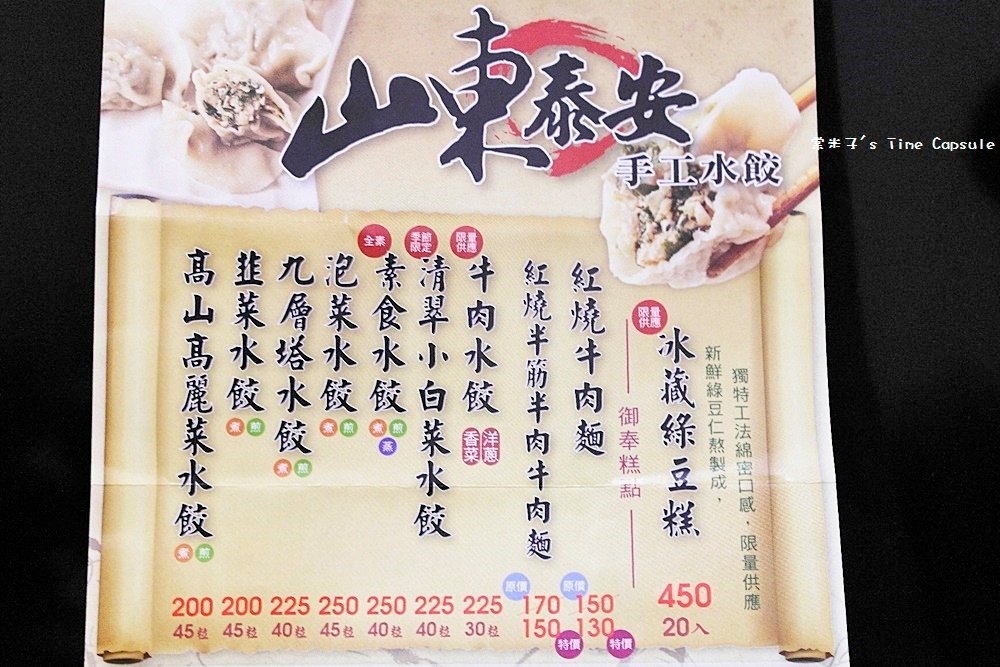 山東泰安
手工水餃
's Time Capsule
獨特工法綿密口感，限量供應
新鮮綠豆仁熬製成，
限量供應
冰藏綠豆糕
450
20入
御奉糕點
紅燒牛肉麵
原價
150
130
特價
紅燒半筋半肉牛肉麵
原價
170
150
特價
限量供應
牛肉水餃
洋蔥
香菜
225
30粒
季節限定
清翠小白菜水餃
225
40粒
全素
素食水餃
煮 煎
蒸
250
40粒
泡菜水餃
煮 煎
250
45粒
九層塔水餃
煮 煎
225
40粒
韭菜水餃
煮 煎
200
45粒
高山高麗菜水餃
煮 煎
200
45粒